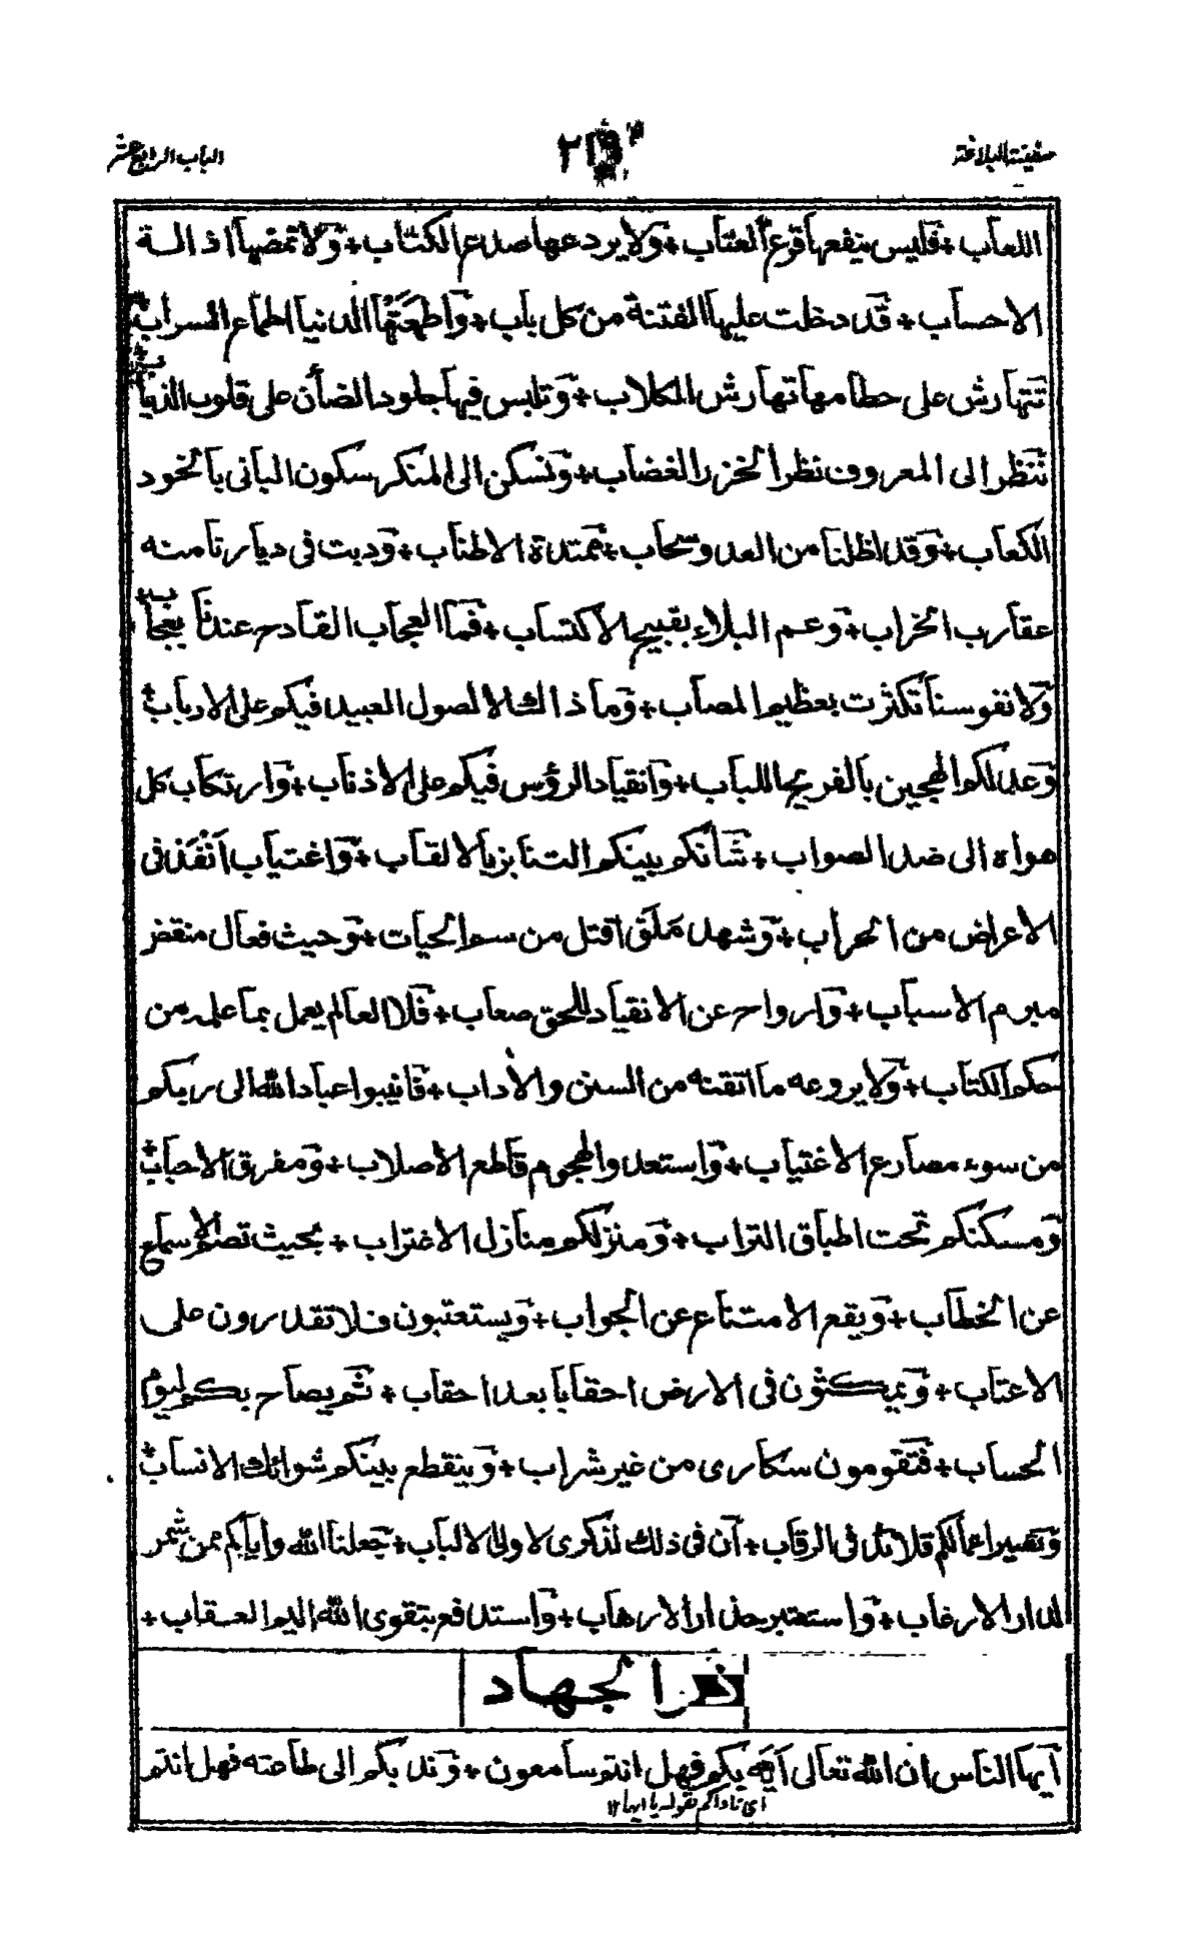 سفينة البلاغة
٢١٩
الباب الرابع عشر
اللعاب + فليس ينفعها قرع العتاب + ولا يردعها صدع الكتاب + ولا تمضها اذالة
الاحساب + قد دخلت عليها الفتنة من كل باب + واطمعتها الدنيا اطماع السراب +
تتهارش على حطامها تهارش الكلاب + وتلبس فيها جلود الضأن على قلوب الذياب +
تنظر الى المعروف نظر الخزر الغضاب + وتسكن الى المنكر سكون البانى بالخود
الكعاب + وقد اظلنا من العدو سحاب + ممتدة الاطناب + ودبت فى ديارنا منه
عقارب الخراب + وعم البلاء بقبيح الاكتساب + فما العجاب القادح عندنا بعجاب +
ولا نفوسنا تكثرت بعظيم المصاب + وما ذالك الا لصول العبيد فيكم على الارباب +
وعدلكم الهجين بالفريح اللباب + وانقياد الرؤس فيكم على الاذناب + وارتكاب كل
هواه الى ضد الصواب + شأنكم بينكم التنابز بالالقاب + واغتياب انفذ فى
الاعراض من الحراب + وشهد ملق اقتل من سم الحيات + وحيث فعال منقض
مبرم الاسباب + وارواح عن الانقياد للحق صعاب + فلا العالم يعمل بما علمه من
حكم الكتاب + ولا يروعه ما اتقنه من السنن والأداب + فانيبوا عباد الله الى ربكم
من سوء مصارع الاغتياب + واستعدوا لهجوم قاطع الاصلاب + ومفرق الاحباب +
ومسكنكم تحت اطباق التراب + ومنزلكم منازل الاغتراب + بحيث تصم الاسماع
عن الخطاب + ويقع الامتناع عن الجواب + ويستعتبون فلا تقدرون على
الاعتاب + ويمكثون فى الارض احقابا بعد احقاب + ثم يصاح بكم ليوم
الحساب + فتقومون سكارى من غير شراب + وينقطع بينكم شوائك الانساب +
وتصير اعمالكم قلائد فى الرقاب + ان فى ذلك لذكرى لاولى الالباب + جعلنا الله واياكم ممن شمر
لدار الارغاب + واستعبر حذار الارهاب + واستدفع بتقوى الله اليم العقاب +
الجهاد
ايها الناس ان الله تعالى ايه بكم فهل انتم سامعون + وندبكم الى طاعته فهل انتم
اى ناداكم بقوله يا ايها ١٢